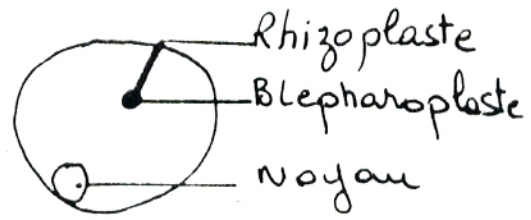 Rhizoplaste
Blepharoplaste
Noyau